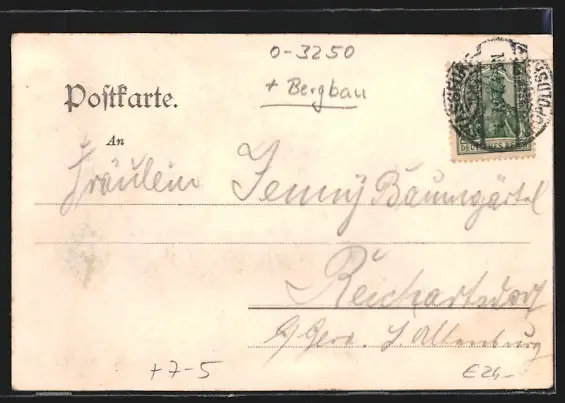 0-3250
+ Bergbau
Postkarte.
DEUTSCHES REICH
An
Fräulein Jenny Baumgärtel
Reichartsdorf
b/ Gera. S. Altenburg
+7-5
€24,-